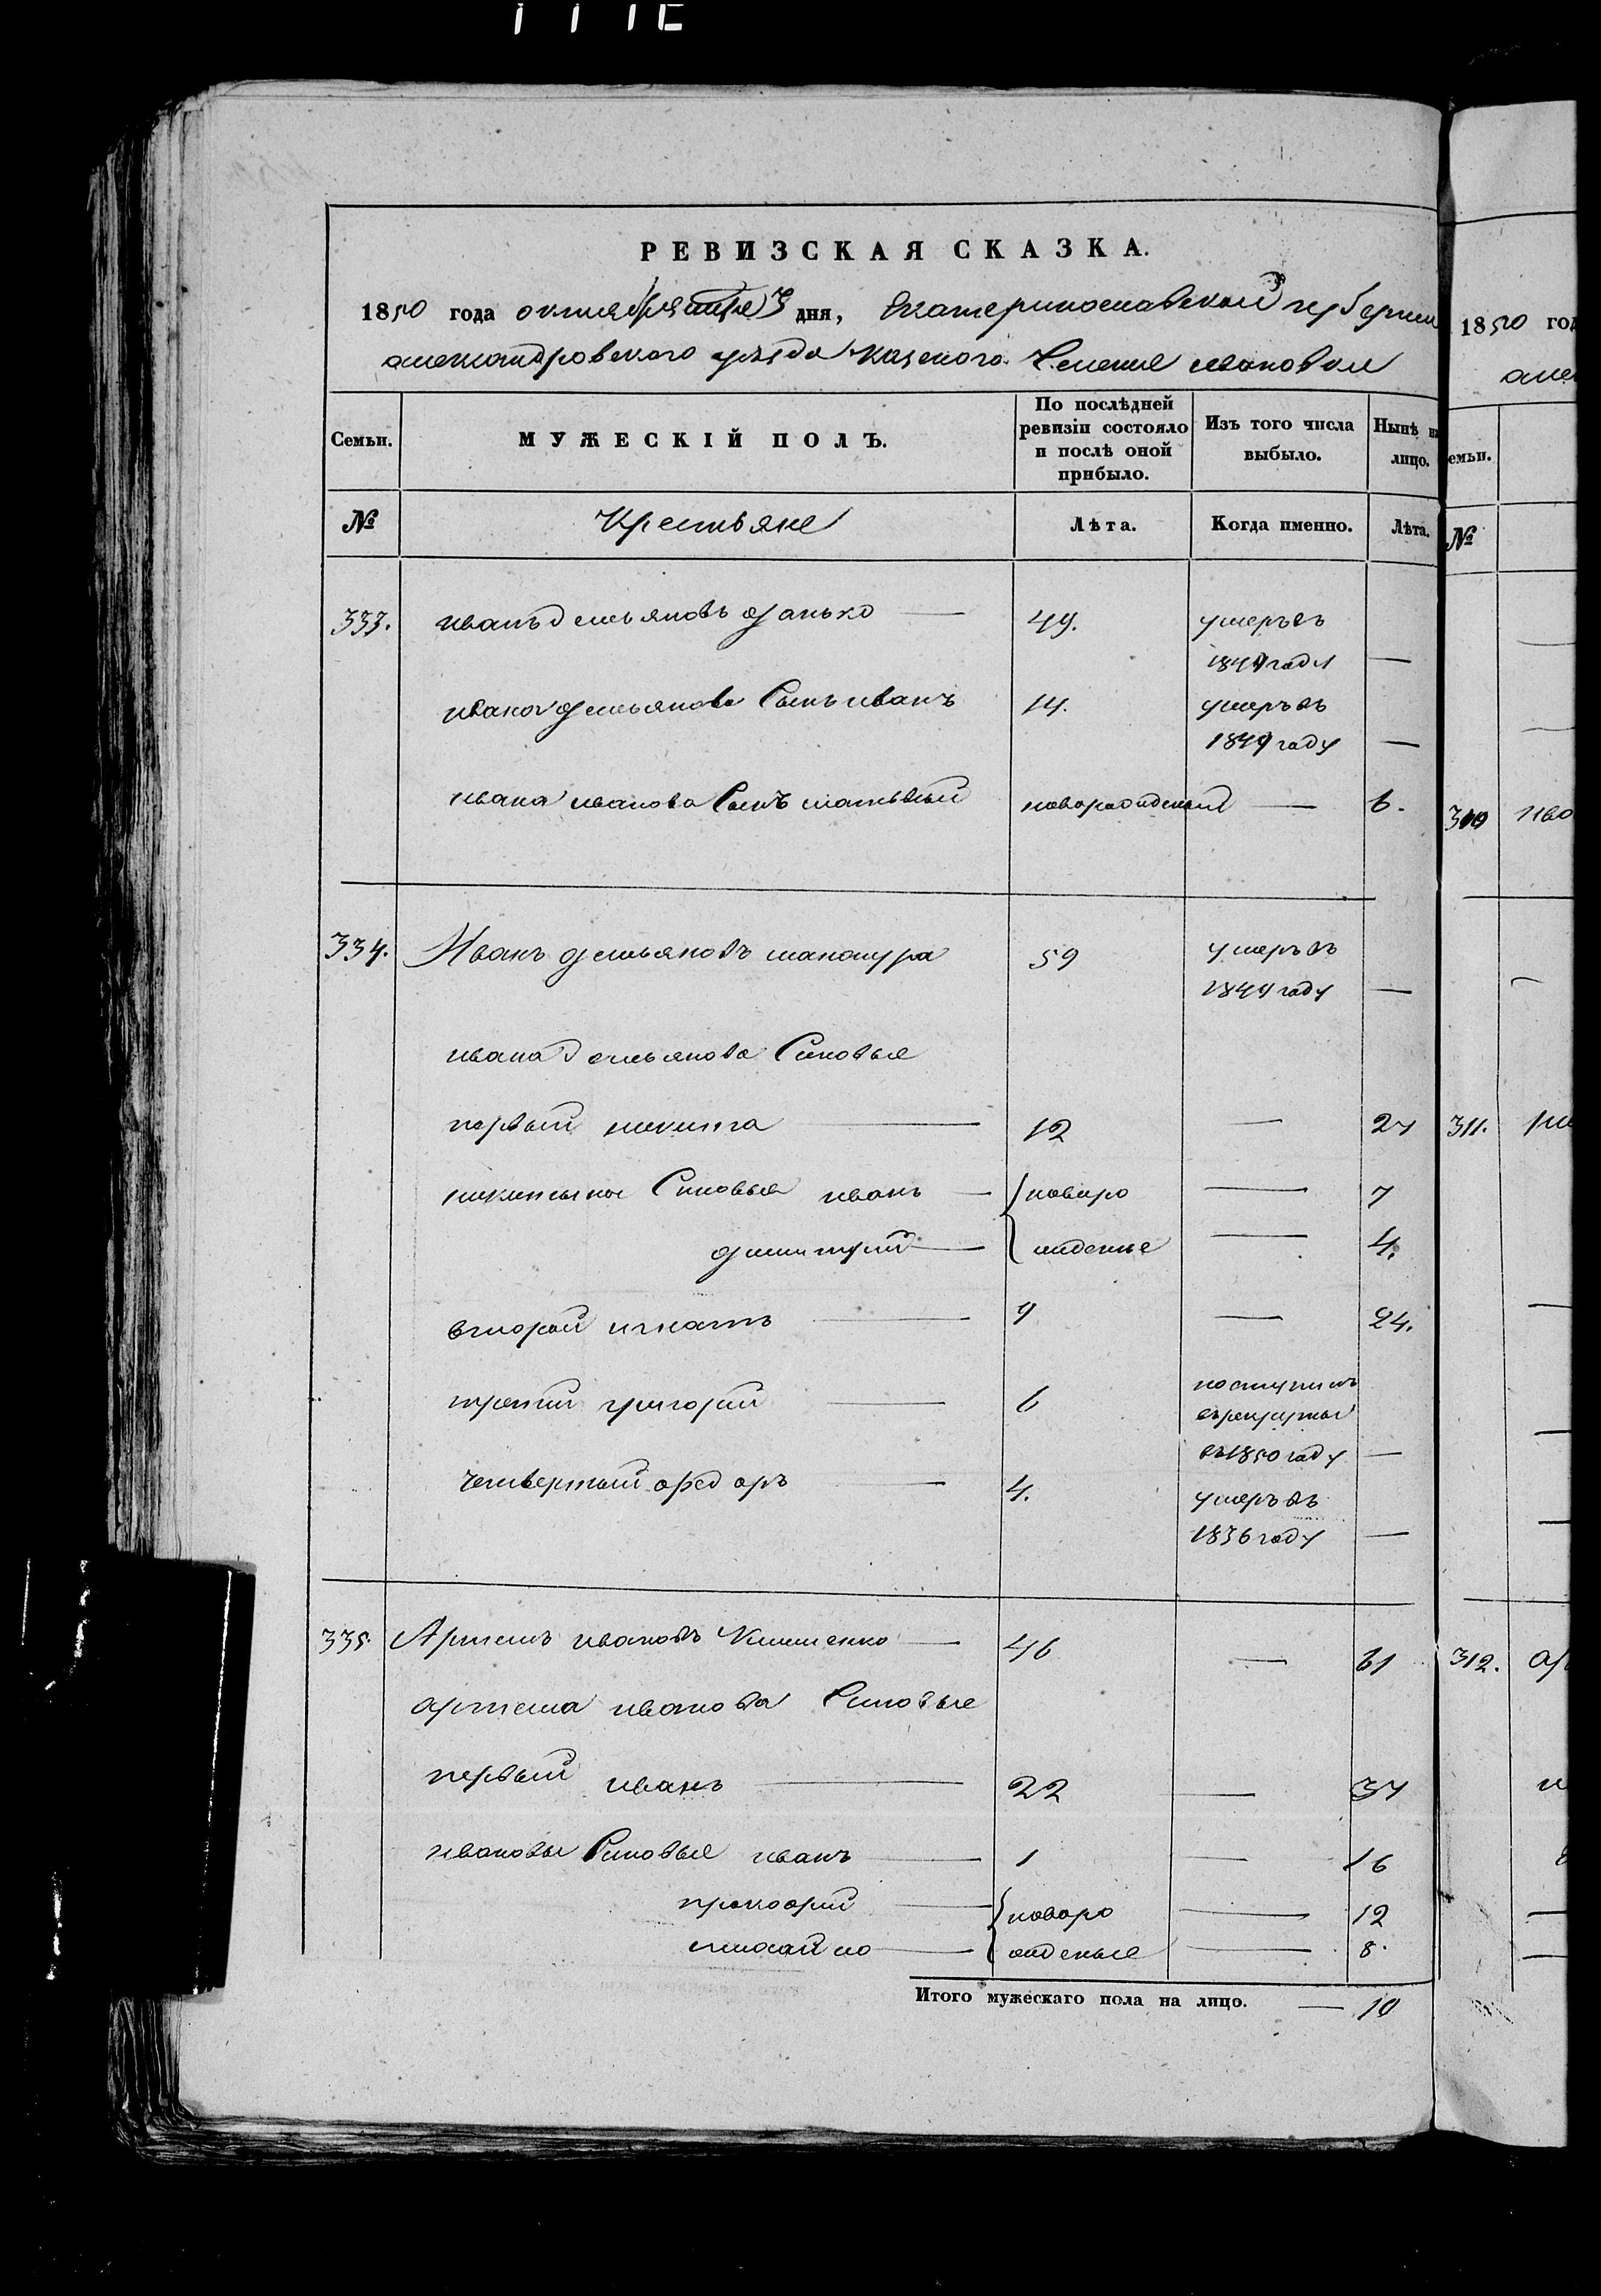 РЕВИЗСКАЯ СКАЗКА.
1850 года октября 3 дня, Екатеринославской губернии
александровского уезда казеного Селения
Семьи.
МУЖЕСКІЙ ПОЛЪ.
По послѣдней ревизіи состояло и послѣ оной прибыло.
Изъ того числа выбыло.
Нынѣ на лицо.
№
Крестьяне
Лѣта.
Когда именно.
Лѣта.
333. иванъ демьяновъ 49. умеръ въ
1849 году —
ивана демьянова Сынъ иванъ 14. умеръ въ
1849 году —
ивана иванова Сынъ матьвей новорожденый — 6.
334. Иванъ демьяновъ 59 умеръ въ
1844 году —
ивана демьянова Синовья
первый никита 12 — 27
никитины Синовья иванъ — новоро — 7
димитрий — жденые — 4.
второй игнатъ 9 — 24.
третий григорий 6 поступилъ
въ рекруты
въ 1850 году —
четвертый федоръ 4. умеръ въ
1836 году —
335. Артемъ ивановъ Клименко — 46 — 61
артема иванова Синовье
первый иванъ 22 — 37
ивановы Синовье иванъ 1 — 16
прокофий новоро — 12
михайло жденые — 8.
Итого мужескаго пола на лицо. — 10
1850 год
емьи.
№
310 ива
311.
312. ар